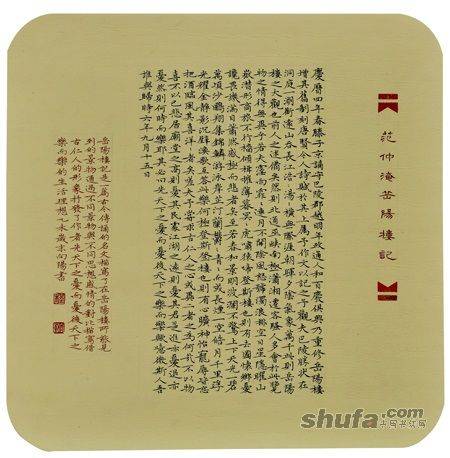 范仲淹岳陽樓記
慶曆四年春滕子京謫守巴陵郡越明年政通人和百廢俱興乃重修岳陽樓
增其舊制刻唐賢今人詩賦於其上屬予作文以記之予觀夫巴陵勝狀在
洞庭一湖銜遠山吞長江浩〃湯〃橫無際涯朝暉夕陰氣象萬千此則岳陽
樓之大觀也前人之述備矣然則北通巫峽南極瀟湘遷客騷人多會於此覽
物之情得無異乎若夫霪雨霏〃連月不開陰風怒號濁浪排空日星隱曜山
嶽潛形商旅不行檣傾楫摧薄暮冥〃虎嘯猿啼登斯樓也則有去國懷鄉憂
讒畏譏滿目蕭然感極而悲者矣至若春和景明波瀾不驚上下天光一碧
萬頃沙鷗翔集錦鱗游泳岸芷汀蘭郁〃青〃而或長煙一空皓月千里浮
光耀金靜影沉璧漁歌互答此樂何極登斯樓也則有心曠神怡寵辱皆忘
把酒臨風其喜洋〃者矣嗟夫予嘗求古仁人之心或異二者之為何哉不以物
喜不以己悲居廟堂之高則憂其民處江湖之遠則憂其君是進亦憂退亦
憂然則何時而樂耶其必曰先天下之憂而憂後天下之樂而樂歟噫微斯人吾
誰與歸時六年九月十五日
岳陽樓記是一篇古今傳誦的名文描寫了在岳陽樓所能見
到的景物通過不同景物與不同思想感情的對比描寫借
古仁人的形象抒發了作者先天下之憂而憂後天下之
樂而樂的生活理想乙未歲京向陽書
shufa.com
中国书法网